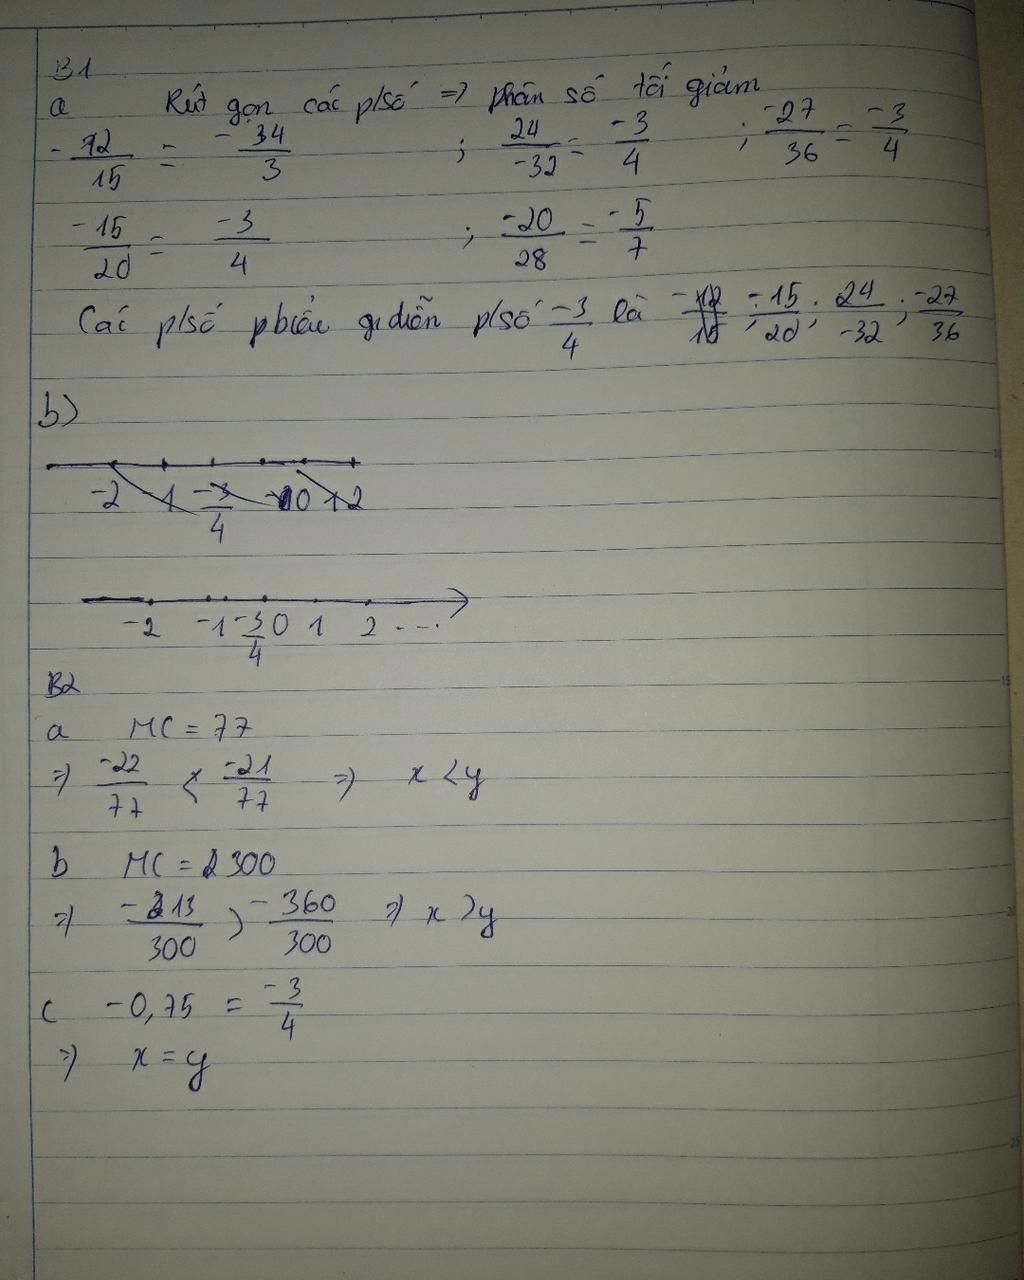 B1
a Rút gọn các p/số => phân số tối giảm
-12/15 = -34/3 ; 24/-32 = -3/4 ; -27/36 = -3/4
-15/20 = -3/4 ; -20/28 = -5/7
Các p/số pbiểu gi diễn p/số -3/4 là -12/15 ; -15/20 ; 24/-32 ; -27/36
b)
-2 -1 -3/4 0 +2
-2 -1 -3/4 0 1 2 ...
B2
a MC = 77
=> -22/77 < -21/77 => x < y
b MC = 300
=> -213/300 > -360/300 => x > y
c -0,75 = -3/4
=> x = y